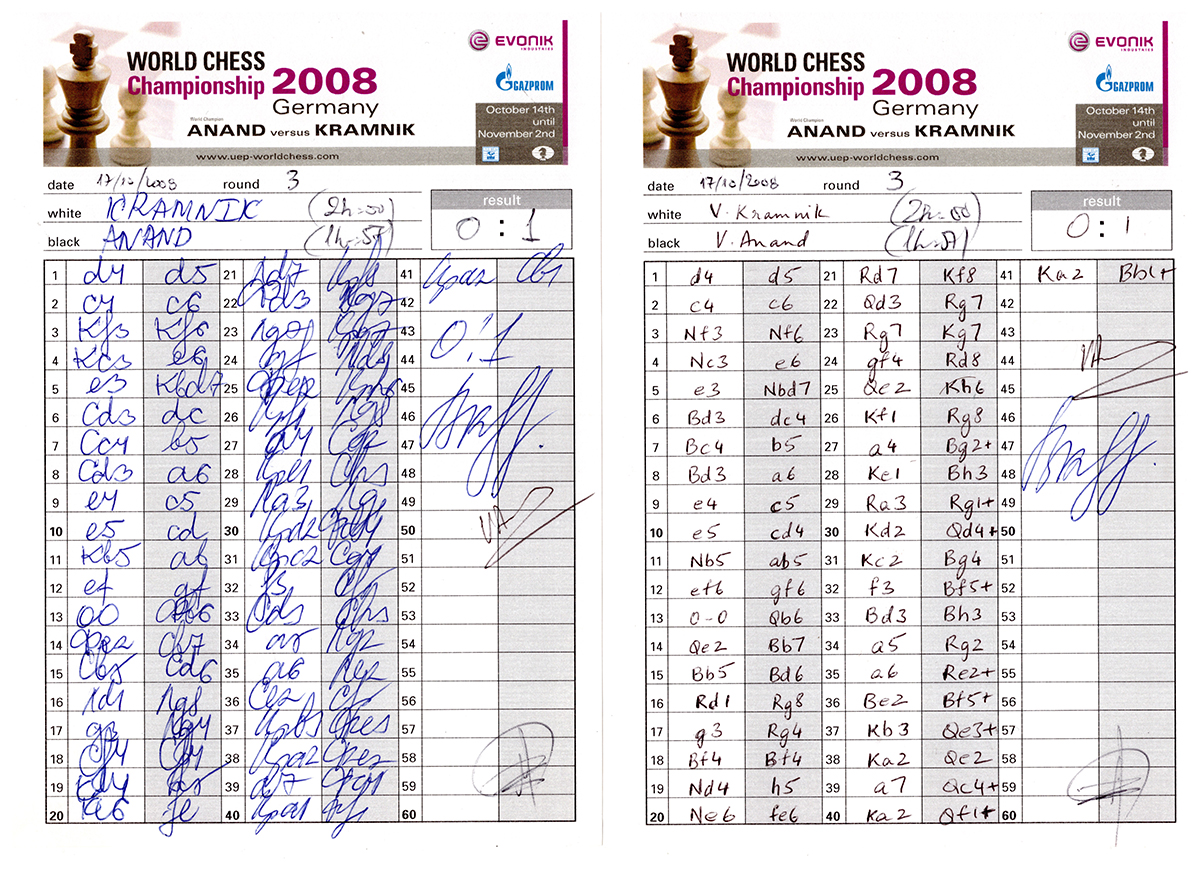 EVONIK
INDUSTRIES
WORLD CHESS
Championship 2008
Germany
GAZPROM
October 14th
until
November 2nd
World Champion
ANAND versus KRAMNIK
www.uep-worldchess.com
date 17/10/2008 round 3
white KRAMNIK (2h=00)
black ANAND (1h=57)
result
0 : 1
1 d4 d5 21 Лd7 Крf8 41 Крa2 Сb1
2 c4 c6 22 Фd3 Лg7 42
3 Kf3 Kf6 23 Лg7 Крg7 43 0:1
4 Kc3 e6 24 gf Лd8 44
5 e3 Kbd7 25 Фe2 Крh6 45
6 Cd3 dc 26 Крf1 Лg8 46
7 Cc4 b5 27 a4 Сg2 47
8 Cd3 a6 28 Крe1 Сh3 48
9 e4 c5 29 Лa3 Лg1 49
10 e5 cd 30 Крd2 Фd4 50 VA
11 Kb5 ab 31 Крc2 Сg4 51
12 ef gf 32 f3 Сf5 52
13 00 Фb6 33 Сd3 Сh3 53
14 Фe2 Сb7 34 a5 Лg2 54
15 Сb5 Сd6 35 a6 Лe2 55
16 Лd1 Лg8 36 Сe2 Сf5 56
17 g3 Лg4 37 Крb3 Фe3 57
18 Сf4 Сf4 38 Крa2 Фe2 58
19 Kd4 h5 39 a7 Фc4 59
20 Ke6 fe 40 Крa1 Фf1 60
EVONIK
INDUSTRIES
WORLD CHESS
Championship 2008
Germany
GAZPROM
October 14th
until
November 2nd
World Champion
ANAND versus KRAMNIK
www.uep-worldchess.com
date 17/10/2008 round 3
white V. Kramnik (2h=00)
black V. Anand (1h=57)
result
0 : 1
1 d4 d5 21 Rd7 Kf8 41 Ka2 Bb1+
2 c4 c6 22 Qd3 Rg7 42
3 Nf3 Nf6 23 Rg7 Kg7 43
4 Nc3 e6 24 gf4 Rd8 44 VA
5 e3 Nbd7 25 Qe2 Kh6 45
6 Bd3 dc4 26 Kf1 Rg8 46
7 Bc4 b5 27 a4 Bg2+ 47
8 Bd3 a6 28 Ke1 Bh3 48
9 e4 c5 29 Ra3 Rg1+ 49
10 e5 cd4 30 Kd2 Qd4+ 50
11 Nb5 ab5 31 Kc2 Bg4 51
12 ef6 gf6 32 f3 Bf5+ 52
13 0-0 Qb6 33 Bd3 Bh3 53
14 Qe2 Bb7 34 a5 Rg2 54
15 Bb5 Bd6 35 a6 Re2+ 55
16 Rd1 Rg8 36 Be2 Bf5+ 56
17 g3 Rg4 37 Kb3 Qe3+ 57
18 Bf4 Bf4 38 Ka2 Qe2 58
19 Nd4 h5 39 a7 Qc4+ 59
20 Ne6 fe6 40 Ka2 Qf1+ 60